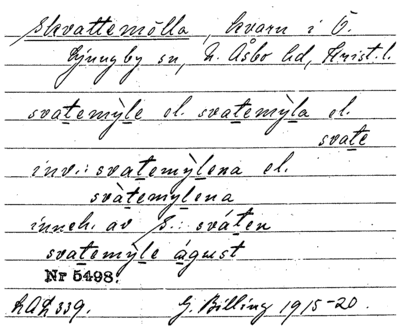 Skvattemölla, kvarn i Ö.
Ljungby sn, N. Åsbo hd, Krist. l.
svatemỳle el. svatemỳla el.
svate
inv.: svatemỳlena el.
svàtemylena
inneh. av S.: sváten
svatemỳle águst
Nr 5498.
LAL 339. G. Billing 1915-20.